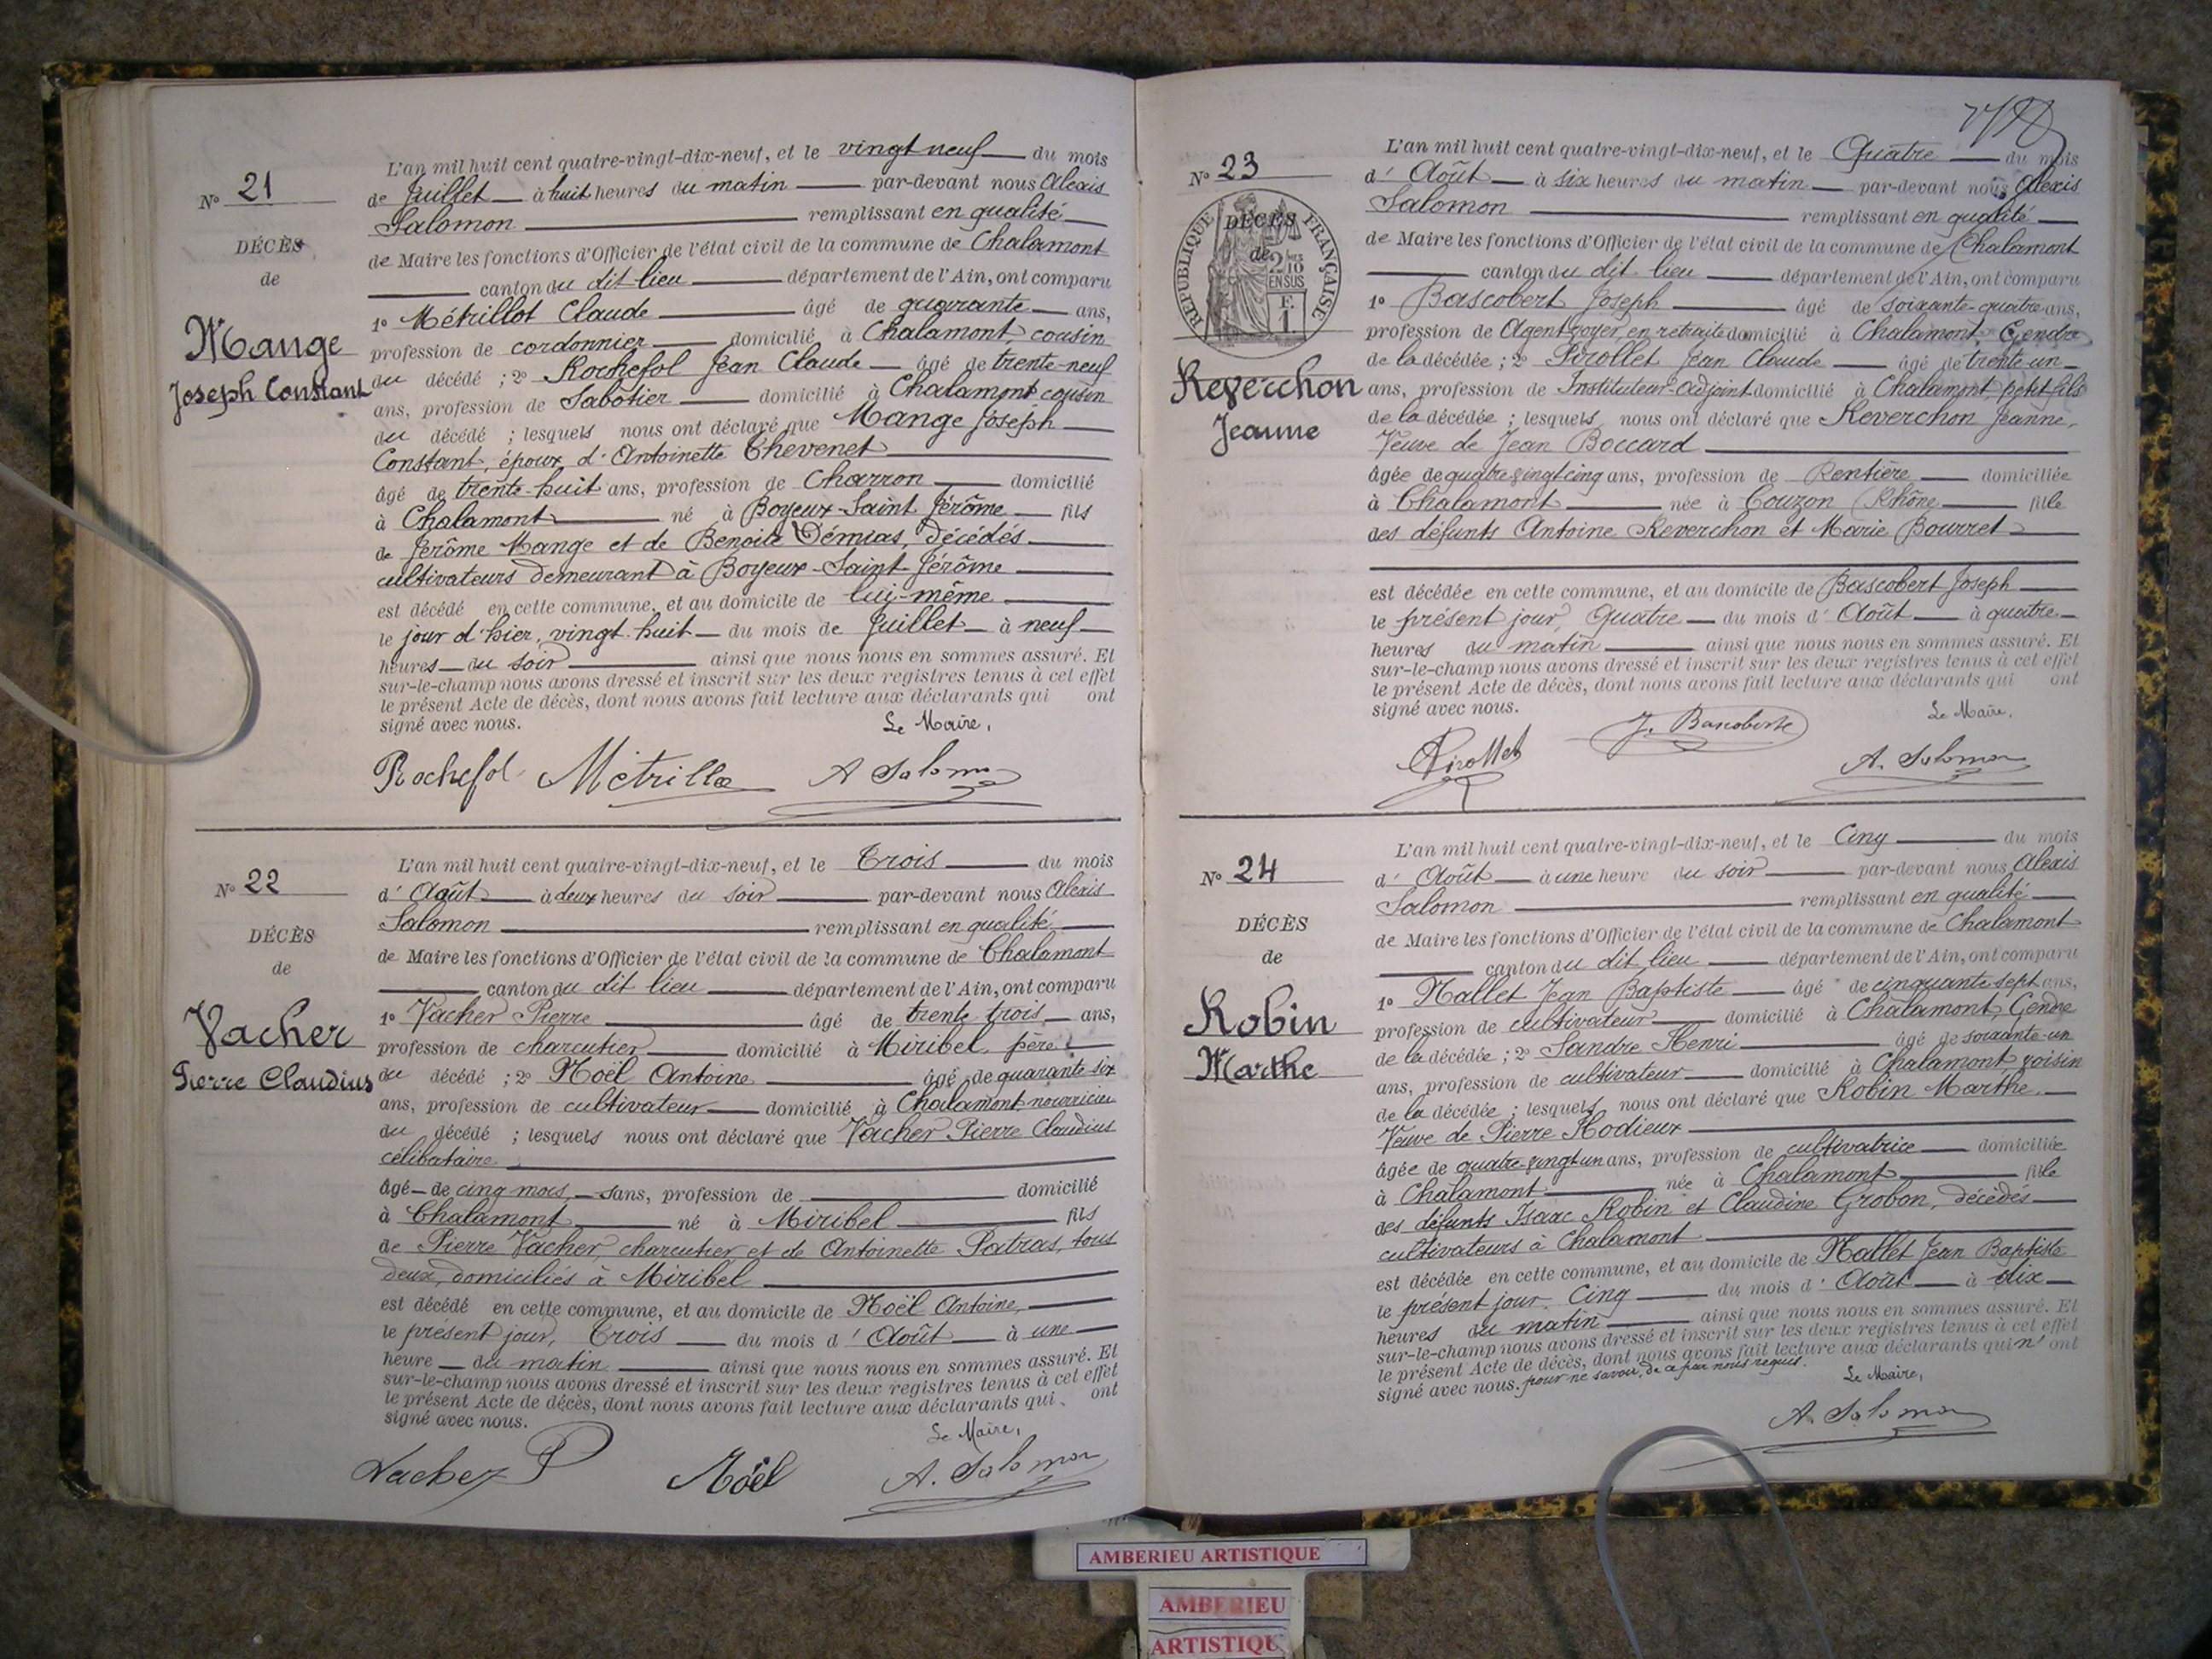 N° 21
DÉCÈS
de
Mange
Joseph Constant
L'an mil huit cent quatre-vingt-dix-neuf, et le vingt neuf du mois
de Juillet à huit heures du matin par-devant nous Alexis
Salomon remplissant en qualité
de Maire les fonctions d'Officier de l'état civil de la commune de Chalamont
canton du dit lieu département de l'Ain, ont comparu
1° Métrillot Claude âgé de quarante ans,
profession de cordonnier domicilié à Chalamont, cousin
du décédé ; 2° Rochefol Jean Claude âgé de trente-neuf
ans, profession de Sabotier domicilié à Chalamont cousin
du décédé ; lesquels nous ont déclaré que Mange Joseph
Constant, époux d'Antoinette Chevenet
âgé de trente-huit ans, profession de Charron domicilié
à Chalamont né à Boyeux-Saint Jérôme fils
de Jérôme Mange et de Benoite Démias, décédés
cultivateurs demeurant à Boyeux-Saint-Jérôme
est décédé en cette commune, et au domicile de lui-même
le jour d'hier, vingt huit du mois de Juillet à neuf
heures du soir ainsi que nous nous en sommes assuré. Et
sur-le-champ nous avons dressé et inscrit sur les deux registres tenus à cet effet
le présent Acte de décès, dont nous avons fait lecture aux déclarants qui ont
signé avec nous.
Le Maire,
Rochefol Métrillo A Salomon
N° 22
DÉCÈS
de
Vacher
Pierre Claudius
L'an mil huit cent quatre-vingt-dix-neuf, et le Trois du mois
d'Août à deux heures du soir par-devant nous Alexis
Salomon remplissant en qualité
de Maire les fonctions d'Officier de l'état civil de la commune de Chalamont
canton du dit lieu département de l'Ain, ont comparu
1° Vacher Pierre âgé de trente trois ans,
profession de charcutier domicilié à Miribel, père
du décédé ; 2° Noël Antoine âgé de quarante-six
ans, profession de cultivateur domicilié à Chalamont, nourricier
du décédé ; lesquels nous ont déclaré que Vacher Pierre Claudius
célibataire
âgé de cinq mois, sans, profession de domicilié
à Chalamont né à Miribel fils
de Pierre Vacher, charcutier et de Antoinette Patras, tous
deux, domiciliés à Miribel
est décédé en cette commune, et au domicile de Noël Antoine,
le présent jour, Trois du mois d'Août à une
heure du matin ainsi que nous nous en sommes assuré. Et
sur-le-champ nous avons dressé et inscrit sur les deux registres tenus à cet effet
le présent Acte de décès, dont nous avons fait lecture aux déclarants qui ont
signé avec nous.
Le Maire,
Vacher P Noël A. Salomon
N° 23
RÉPUBLIQUE FRANÇAISE
DÉCÈS
de
2/10 EN SUS
F. 1
Reverchon
Jeanne
L'an mil huit cent quatre-vingt-dix-neuf, et le Quatre du mois
d'Août à six heures du matin par-devant nous, Alexis
Salomon remplissant en qualité
de Maire les fonctions d'Officier de l'état civil de la commune de Chalamont
canton du dit lieu département de l'Ain, ont comparu
1° Bascobert Joseph âgé de soixante-quatre ans,
profession de Agent voyer en retraite domicilié à Chalamont, Gendre
de la décédée ; 2° Pirollet Jean Claude âgé de trente-un
ans, profession de Instituteur-adjoint domicilié à Chalamont, petit fils
de la décédée ; lesquels nous ont déclaré que Reverchon Jeanne,
Veuve de Jean Boccard
âgée de quatre vingt cinq ans, profession de Rentière domiciliée
à Chalamont née à Couzon (Rhône fille
des défunts Antoine Reverchon et Marie Bourret
est décédée en cette commune, et au domicile de Bascobert Joseph
le présent jour, Quatre du mois d'Août à quatre
heures du matin ainsi que nous nous en sommes assuré. Et
sur-le-champ nous avons dressé et inscrit sur les deux registres tenus à cet effet
le présent Acte de décès, dont nous avons fait lecture aux déclarants qui ont
signé avec nous.
Le Maire,
Pirollet J. Bascobert A. Salomon
N° 24
DÉCÈS
de
Robin
Marthe
L'an mil huit cent quatre-vingt-dix-neuf, et le Cinq du mois
d'Août à une heure du soir par-devant nous Alexis
Salomon remplissant en qualité
de Maire les fonctions d'Officier de l'état civil de la commune de Chalamont
canton du dit lieu département de l'Ain, ont comparu
1° Nallet Jean Baptiste âgé de cinquante sept ans,
profession de cultivateur domicilié à Chalamont, Gendre
de la décédée ; 2° Sandre Henri âgé de soixante-un
ans, profession de cultivateur domicilié à Chalamont voisin
de la décédée ; lesquels nous ont déclaré que Robin Marthe
Veuve de Pierre Rodieux
âgée de quatre-vingt un ans, profession de cultivatrice domiciliée
à Chalamont née à Chalamont fille
des défunts Isaac Robin et Claudine Grobon, décédés
cultivateurs à Chalamont
est décédée en cette commune, et au domicile de Nallet Jean Baptiste
le présent jour, Cinq du mois d'Août à dix
heures du matin ainsi que nous nous en sommes assuré. Et
sur-le-champ nous avons dressé et inscrit sur les deux registres tenus à cet effet
le présent Acte de décès, dont nous avons fait lecture aux déclarants qui n'ont
signé avec nous. pour ne savoir, de ce par nous requis.
Le Maire,
A. Salomon
AMBERIEU ARTISTIQUE
AMBERIEU
ARTISTIQU